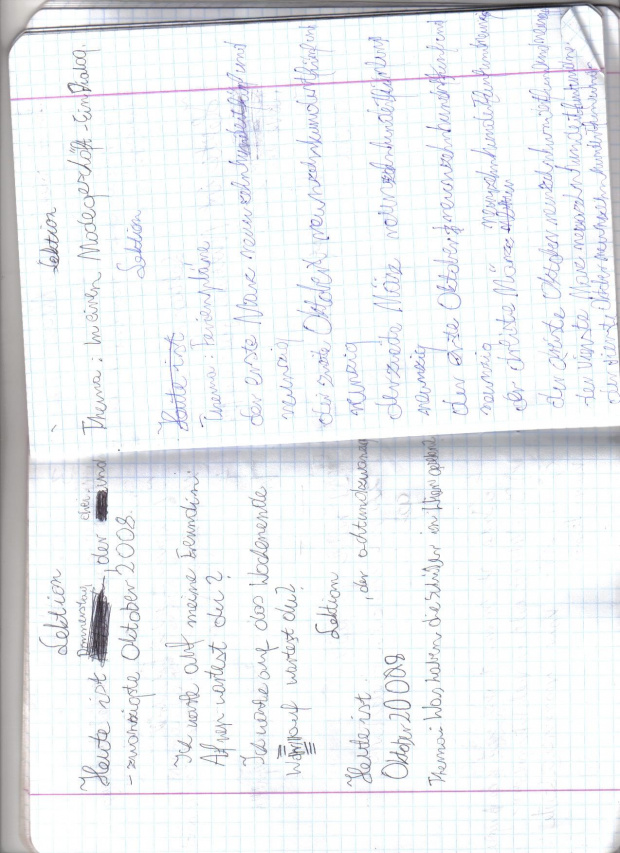 Lektion
Heute ist Donnerstag, der drei und
- zwanzigste Oktober 2008.
Ich warte auf meine Freundin.
Af wen wartest du?
Ich warte auf das Wochenende
Worauf wartest du?
Lektion
Heute ist , der achtundzwanzi
Oktober 2008
Thema: Was haben die Schüler in
Lektion
Thema: In einen Modegeschäft - Ein Dialog.
Lektion
Heute ist
Thema: Ferienpläne
der erste März neunzehnhundert
neunzig
der erste Oktober neunzehnhundertfünfund
neunzig
der zweite März neunzehnhundertfünfund
neunzig
der zweite Oktober neunzehnhundertfünfund
neunzig
der dritte März neunzehnhundertfünfundneunzig
der dritte Oktober neunzehnhundertfünfundneunzig
der vierte März neunzehnhundertfünfund
der vierte Oktober neunzehnhundertfünfund